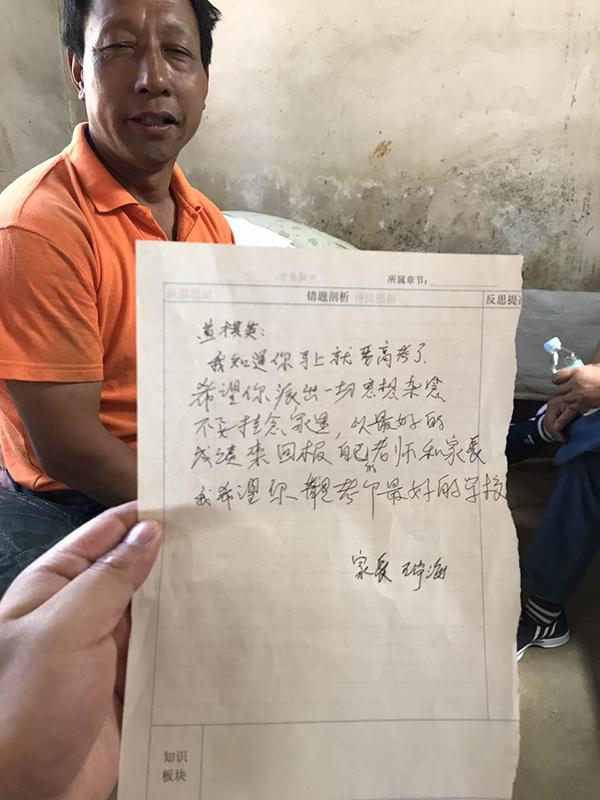 所属章节:
错题剖析 反思提
英:
我知道你马上就要高考了
希望你派出一切思想杂念
不要挂念家里,以最好的
成绩来回报自己的老师和家长
我希望你 考个最好的学校
家长
知识
板块